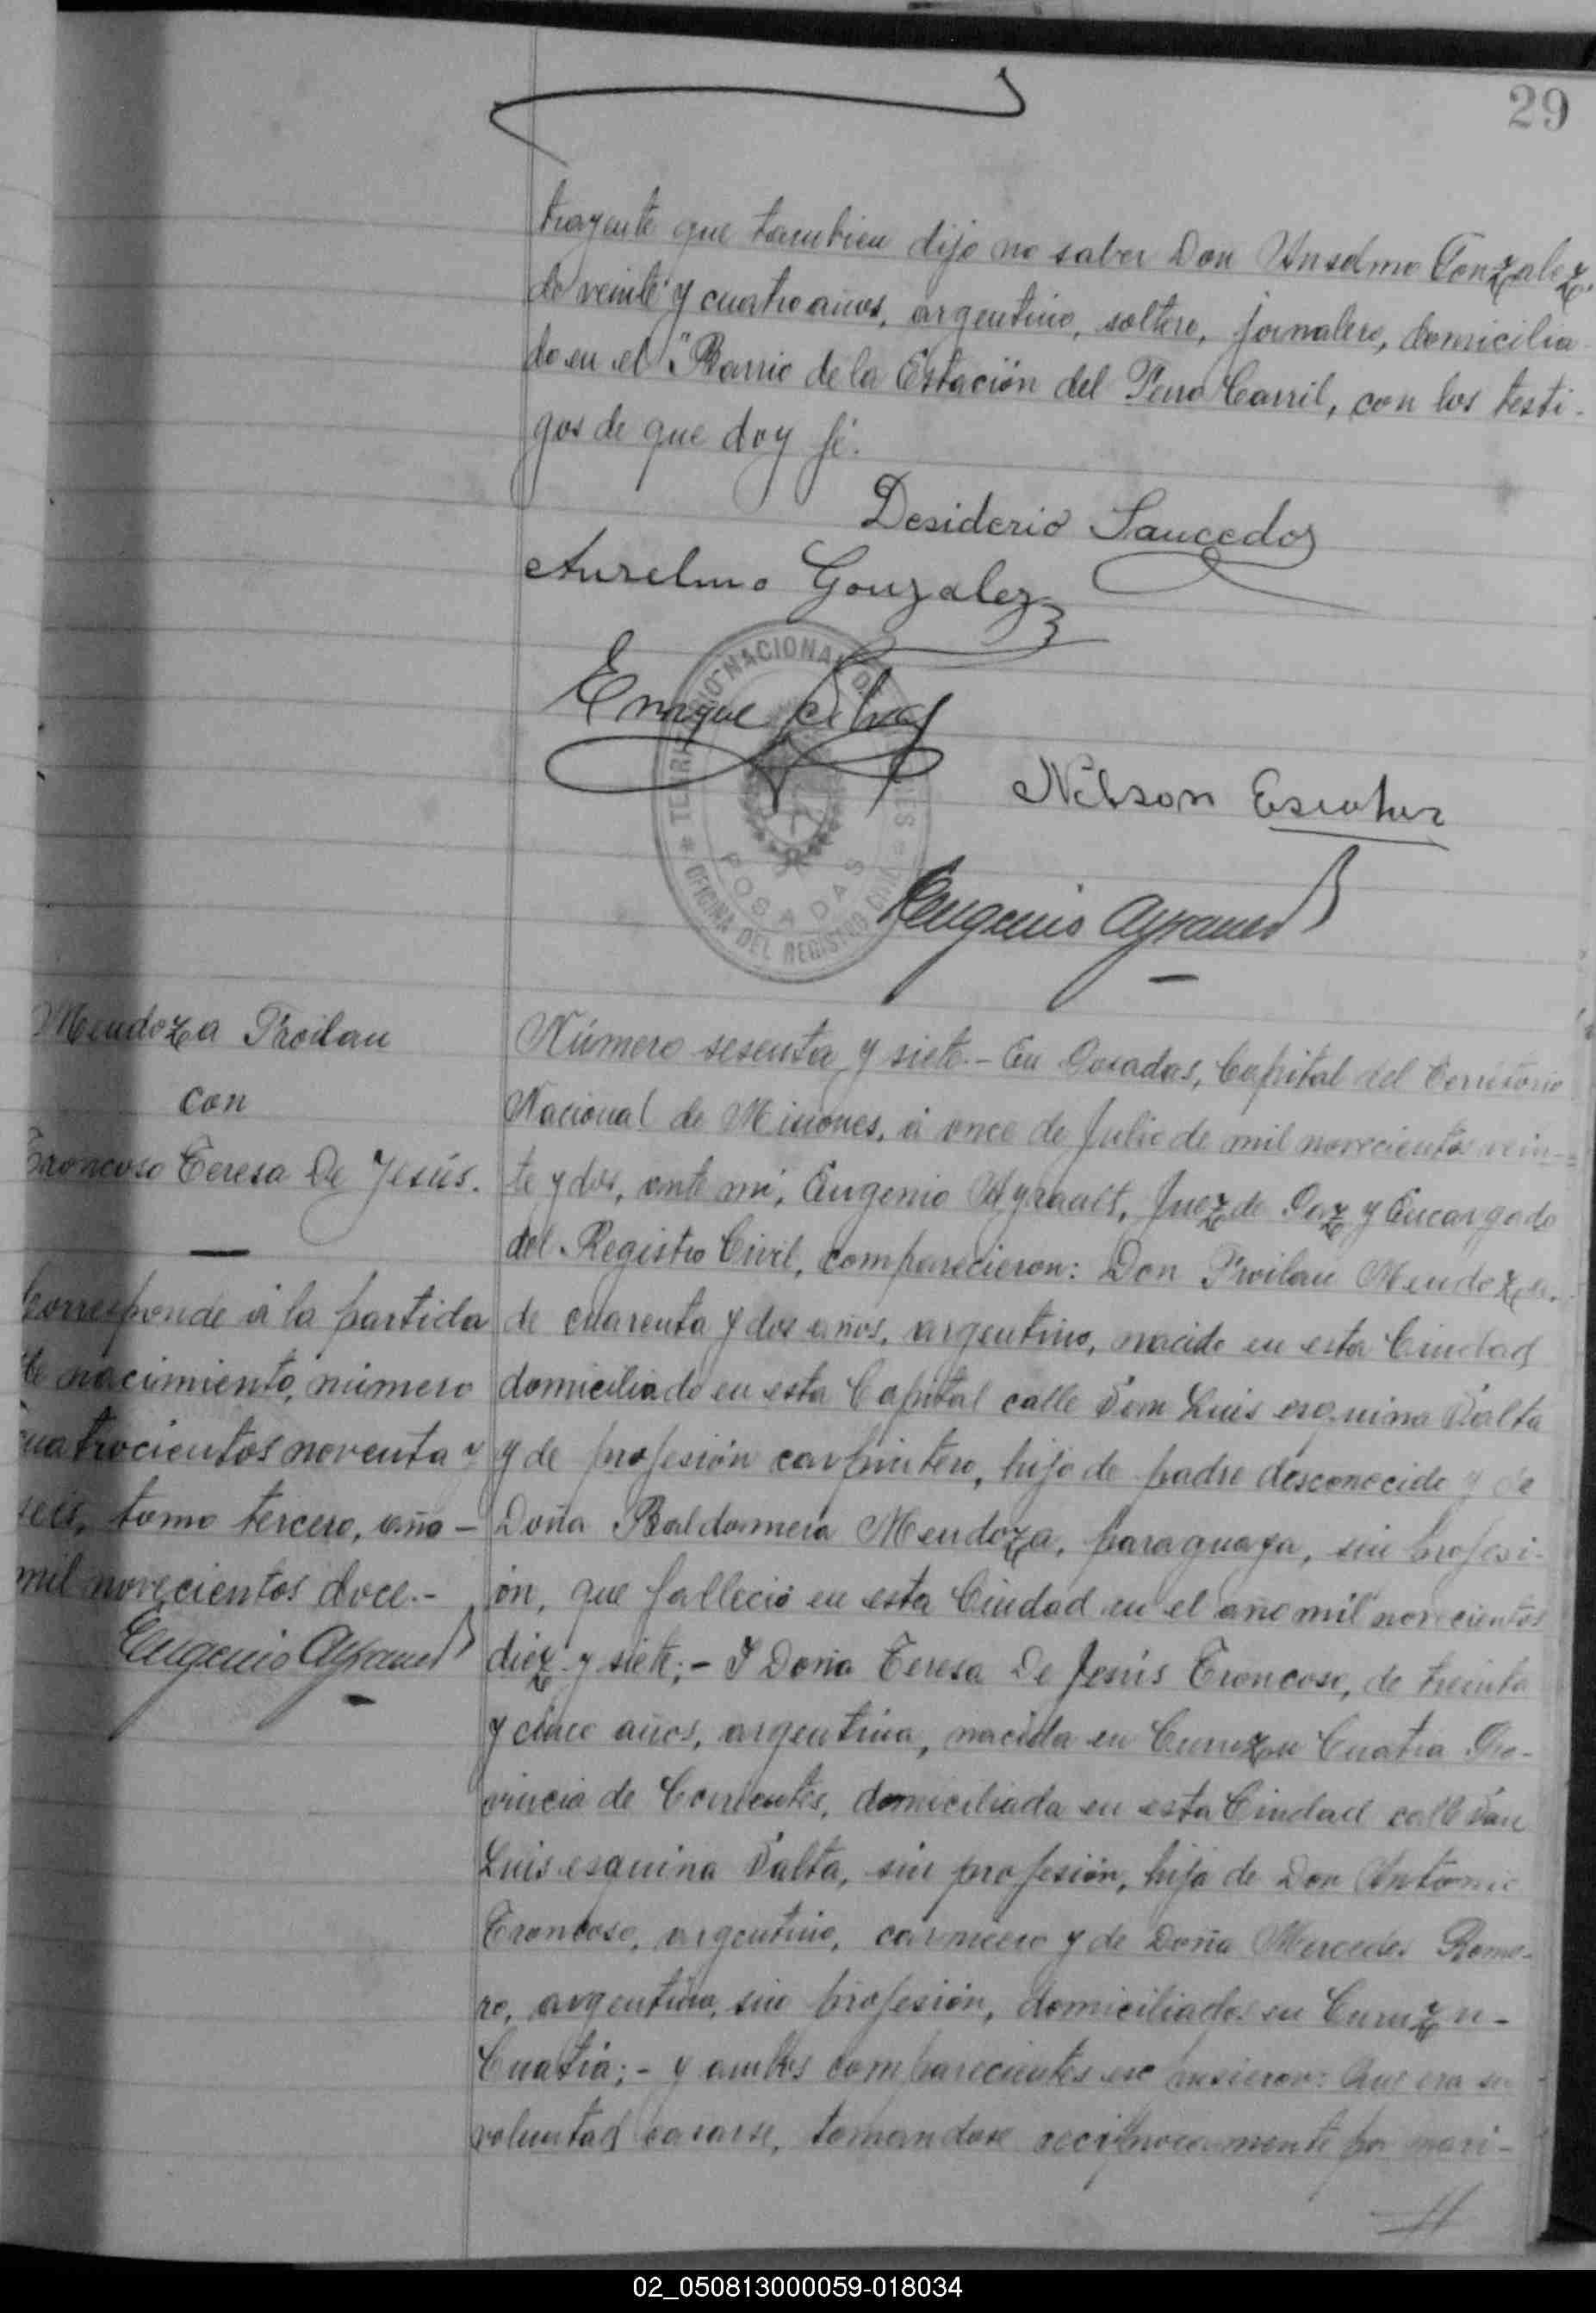 29
trayente que tambien dijo no saber Don Anselmo Gonzalez,
de veinte y cuatro años, argentino, soltero, jornalero, domicilia-
do en el "Barrio de la Estación del Ferro Carril, con los testi-
gos de que doy fé.
Desiderio Saucedo
Anselmo Gonzalez
Enrique Silva
TERRITORIO NACIONAL DE
OFICINA DEL REGISTRO CIVIL
POSADAS
Nelson Escobar
Eugenio Ayrault
Mendoza Froilan
con
Troncoso Teresa De Jesús.
Corresponde á la partida
de nacimiento, número
cuatrocientos noventa y
seis, tomo tercero, año -
mil novecientos doce.-
Eugenio Ayrault
Número sesenta y siete.- En Posadas, Capital del Territorio
Nacional de Misiones, á once de Julio de mil novecientos vein-
te y dos, ante mí, Eugenio Ayrault, Juez de Paz y Encargado
del Registro Civil, comparecieron: Don Froilan Mendoza.
de cuarenta y dos años, argentino, nacido en esta Ciudad
domiciliado en esta Capital calle San Luis esquina Salta
y de profesión carpintero, hijo de padre desconocido y de
Doña Baldomera Mendoza, paraguaya, sin profesi-
ón, que falleció en esta Ciudad en el año mil novecientos
diez y siete;- Y Doña Teresa De Jesús Troncoso, de treinta
y cinco años, argentina, nacida en Curuzu Cuatia Pro-
vincia de Corrientes, domiciliada en esta Ciudad calle San
Luis esquina Salta, sin profesión, hija de Don Antonio
Troncoso, argentino, carnicero y de Doña Mercedes Rome-
ro, argentina, sin profesión, domiciliados en Curuzu-
Cuatia;- y ambos comparecientes expusieron: Que era su
voluntad casarse, tomandose reciprocamente por mari-
02_050813000059-018034